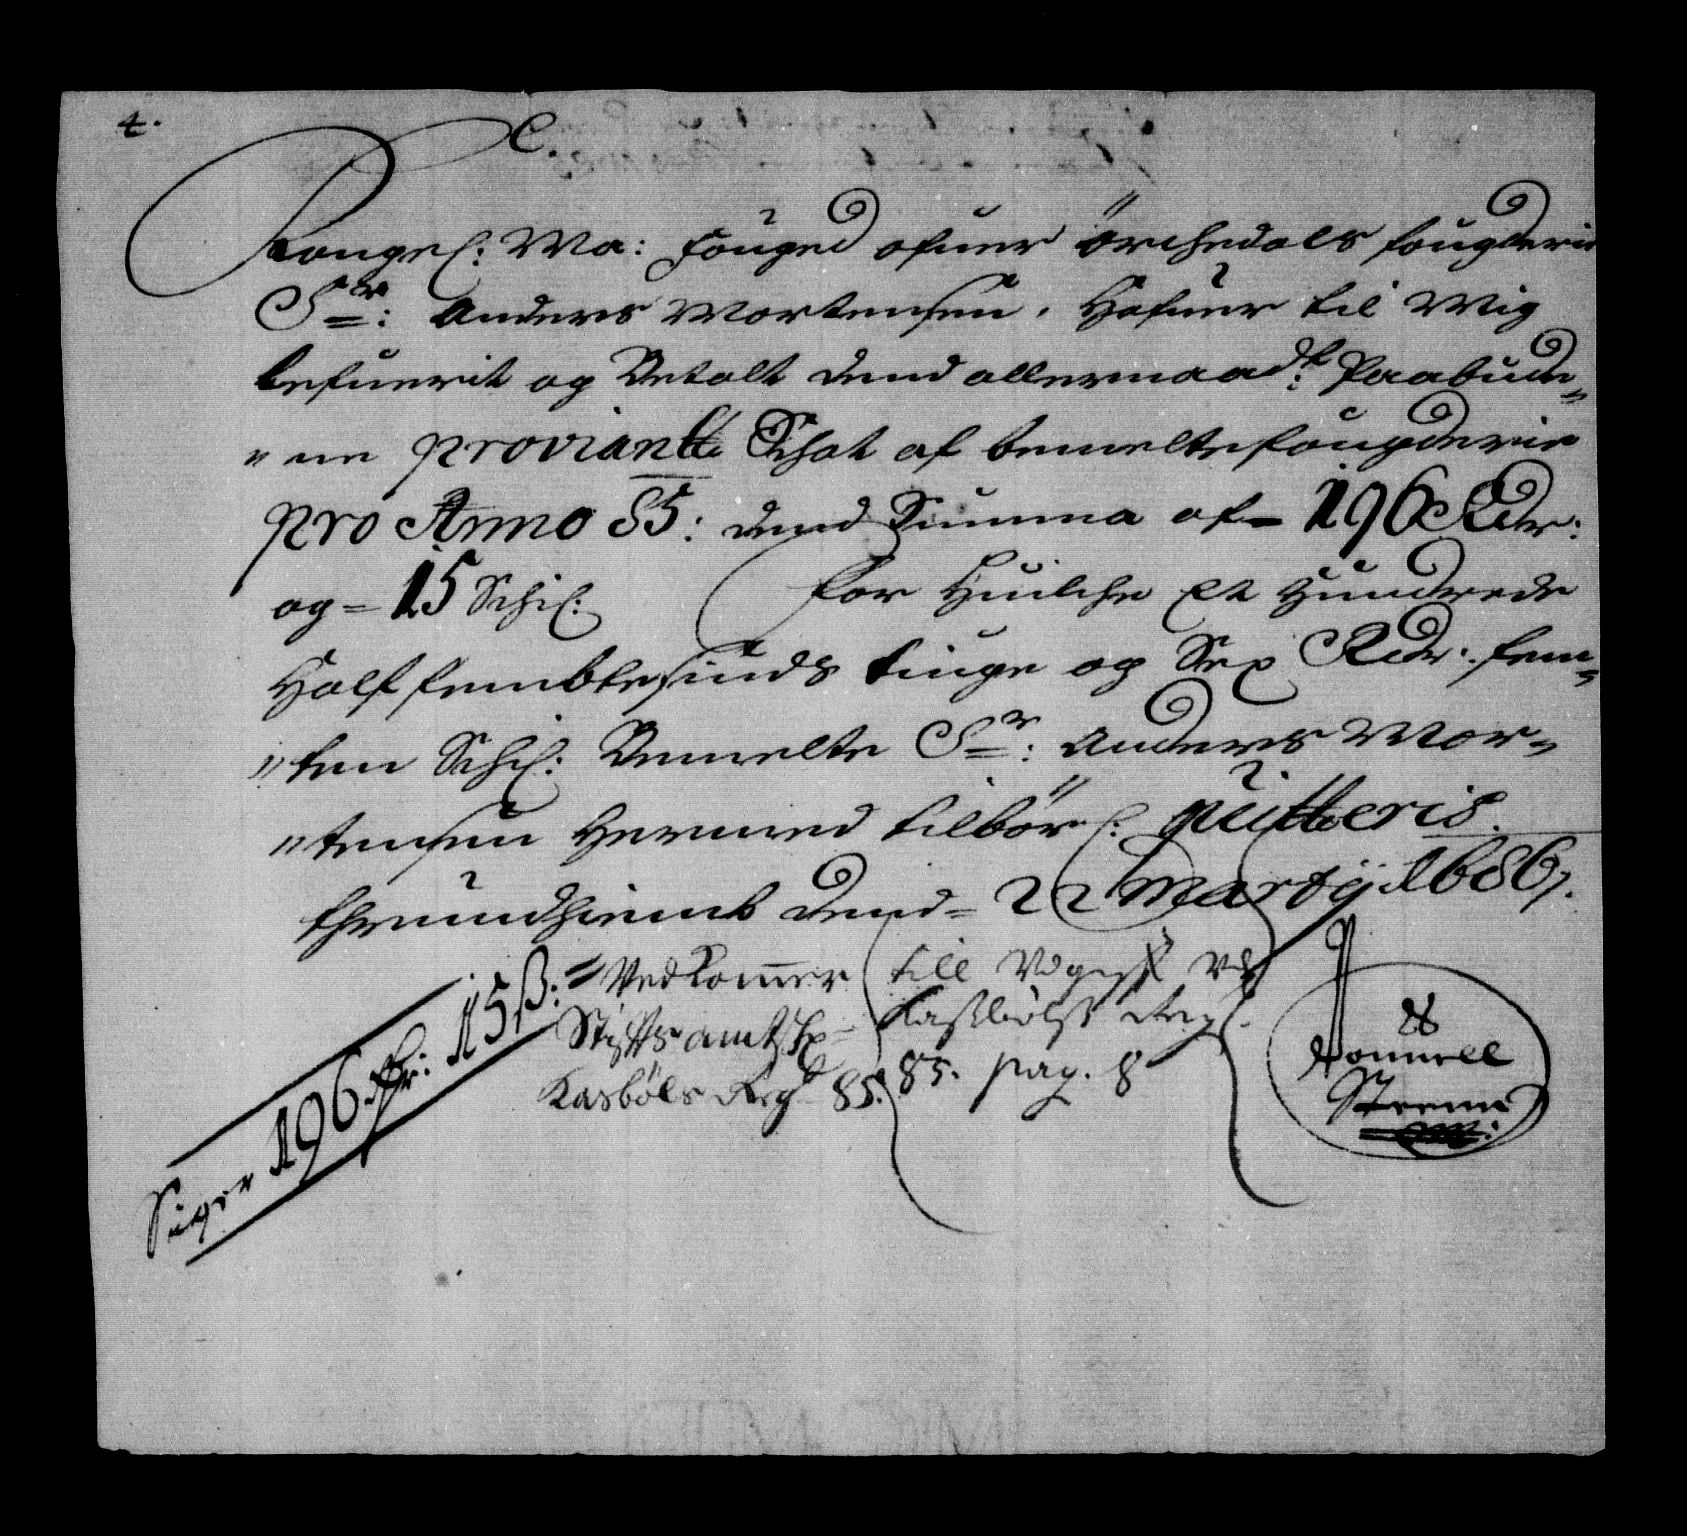 4.
C.
Kongel: Ma: Fouged ofuer Örchedals fougderie
Sr: Anders Mortensen, Hafuer til Mig
lefuerit og Betalt dend allernaadst: Paabud„
„ne proviantt Schat af bemelte fougderie
pro Anno 85: dend Summa af= 196 Rdr:
og= 15 Schil: for Huilche Et Hundrede
Half fembtesinds tiuge og Sex Rdr: fem„
„ten Schil: Bemelte Sr: Anders Mor„
„tensen Hermed tilbörl: quitteris.
Thrundhiemb dend= 22 Martij 1686.
Siger 196 Rdr: 15 ß:
= Vedkommer
Stiffts amtz
Kasböls Regd 85:
till
85. pag. 8
Steen